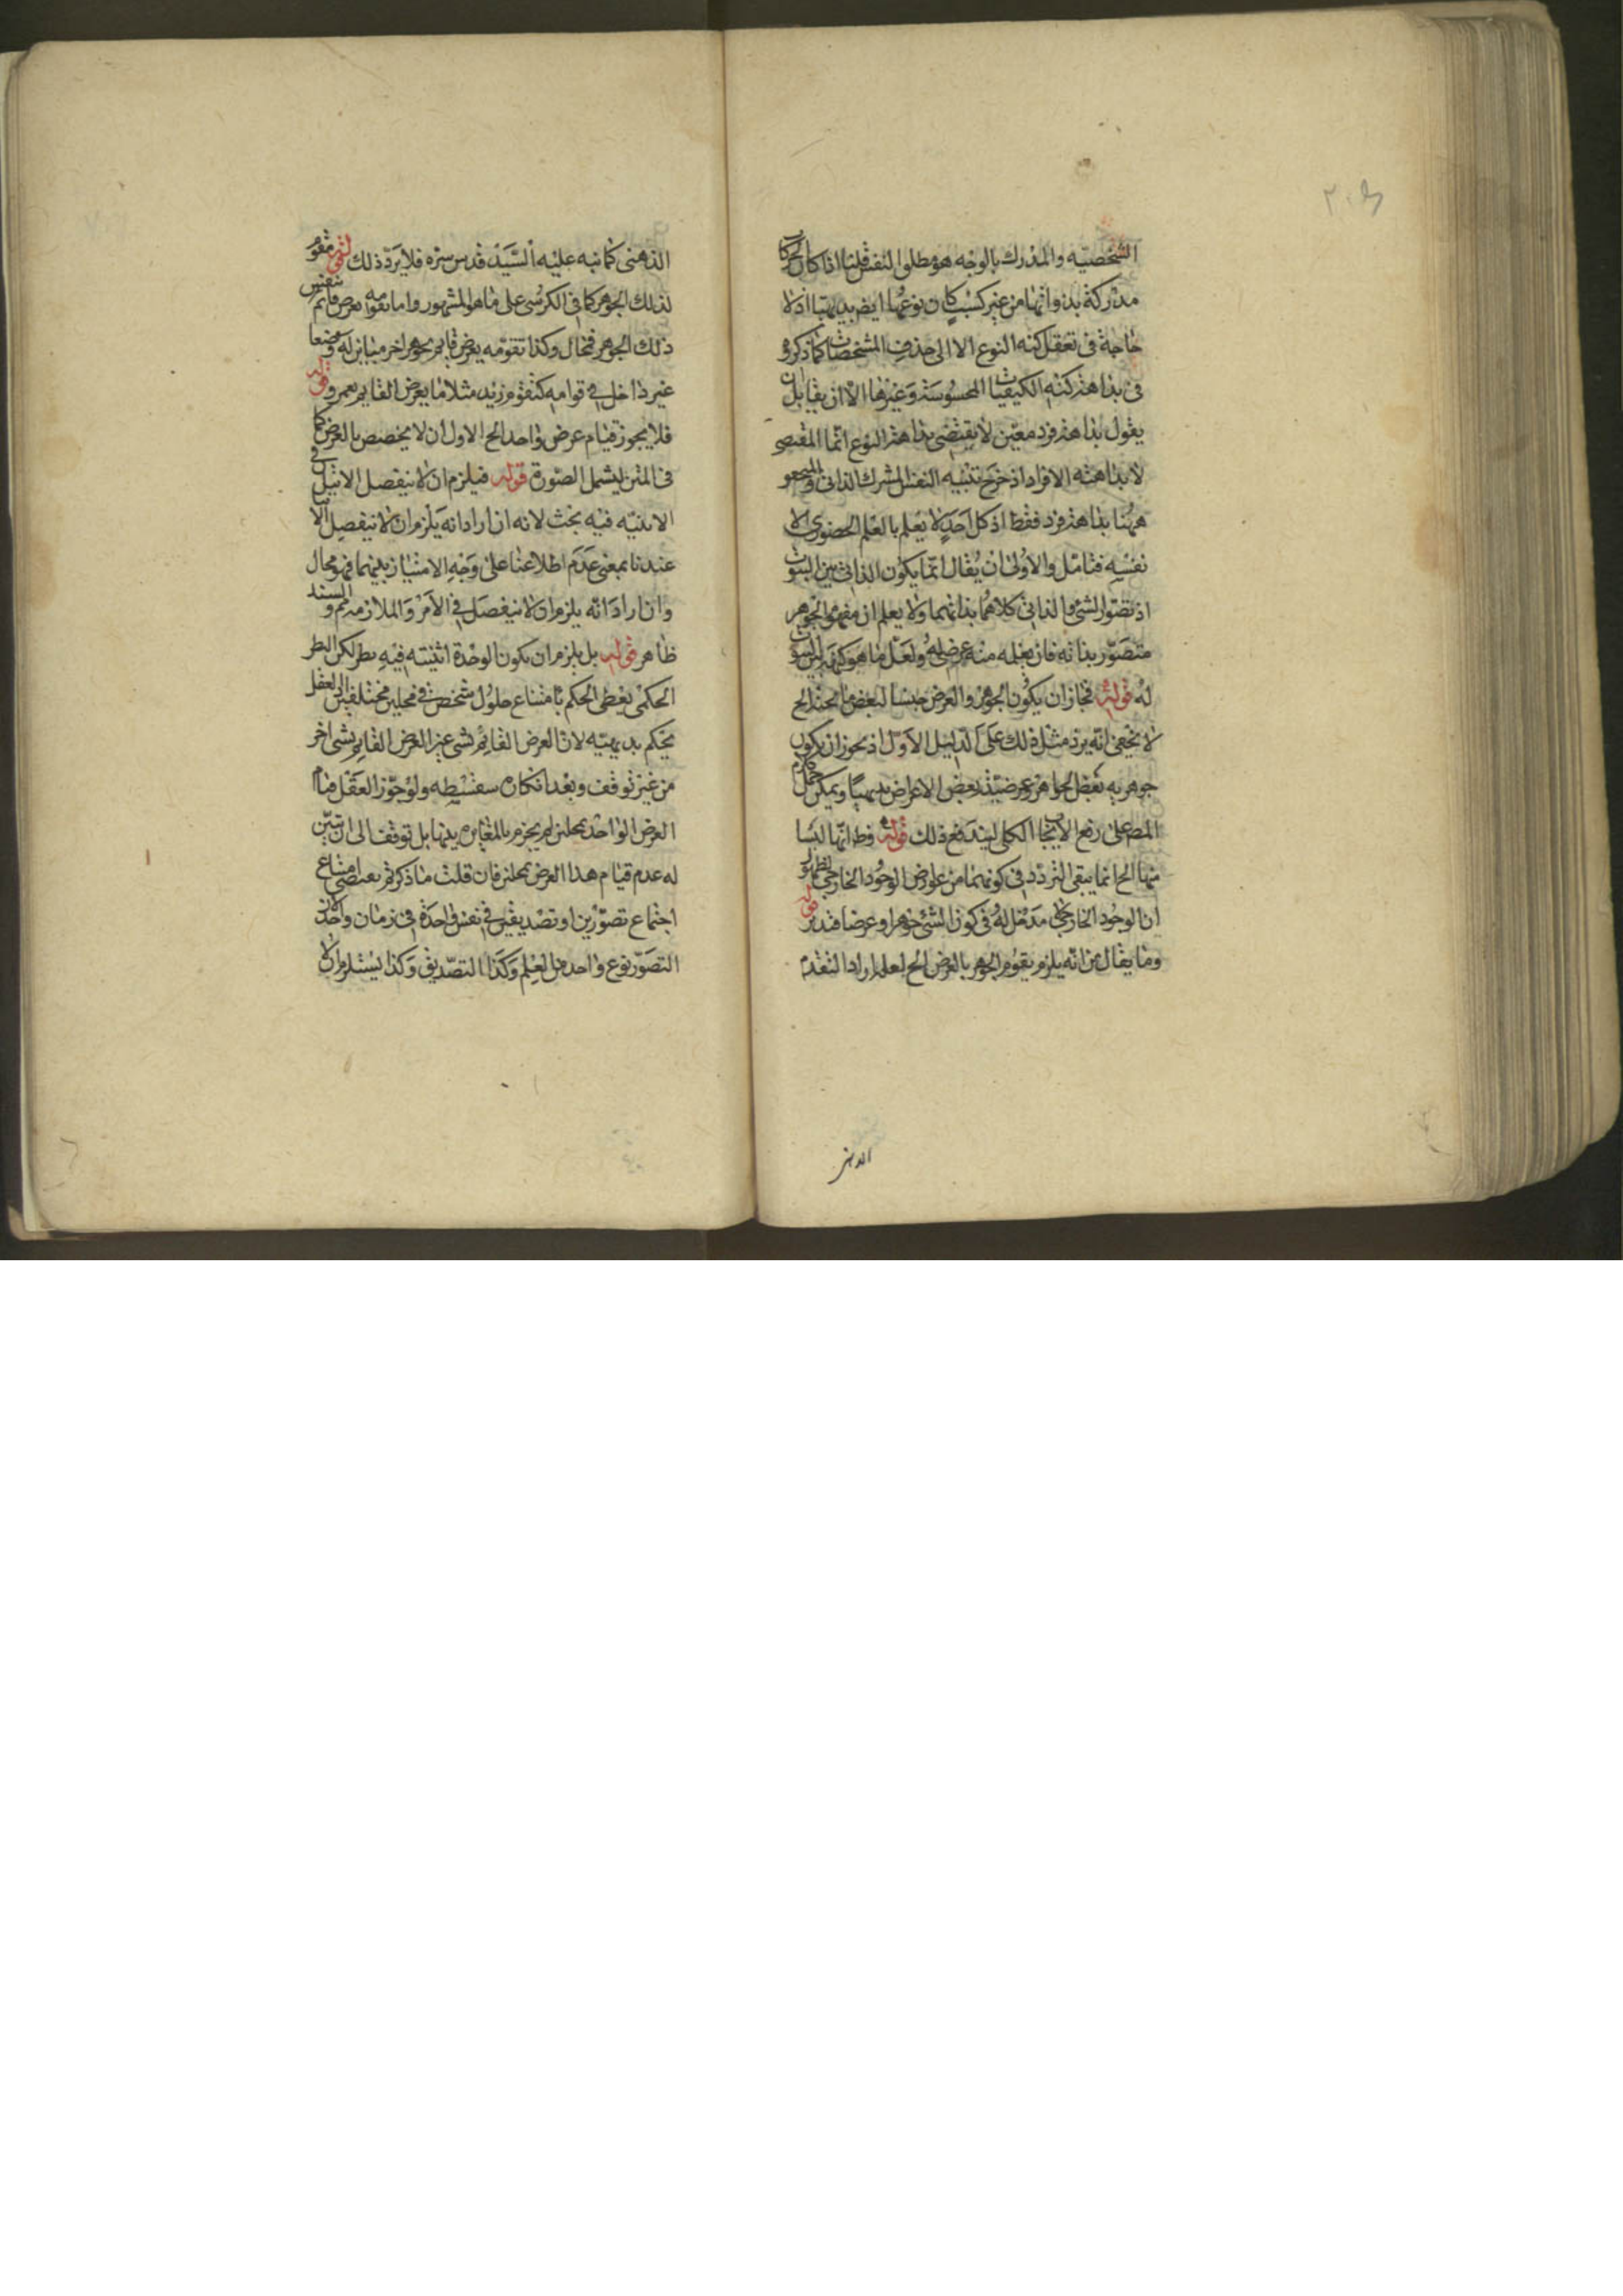 ٢٠٦
الشخصيه والمدرك بالوجه هو مطلق النفس قلنا اذا كان الحركات
مدركة بذواتها من غير كسب كان نوعها ايض بديهيا اذ لا
حاجة فى تعقل كنه النوع الا الى حذف المشخصات كما ذكره
فى بداهة كنه الكيفيات المحسوسة وغيرها الا ان يقابل بان
يقول بداهة فرد معين لا يقتضى بداهة النوع انما المقتضى
لا بداهته الافراد اذ خرج تنبيه النفس المشرك الذاتى
ههنا بداهة فرد فقط اذ كل احد لا يعلم بالعلم الحضورى الا
نفسه فتامل والاولى ان يقال انما يكون الذاتى بين الثبوت
اذ تصور الشئ والذاتى كلاهما بذاتهما ولا يعلم ان مفهوم الجوهر
متصور بذاته فان يعلمه منه عرضى له ولعل ما هو كنهه بين الثبوت
له قوله فجاز ان يكون الجوهر والعرض جنسا لبعض ما تحته الخ
لا يخفى انه يرد مثل ذلك على الدليل الاول اذ يجوز ان يكون
جوهريه بعض الجواهر وعرضيته بعض الاعراض بديهيا ويمكن حمل كلام
المص على رفع الايجاب الكلى ليندفع ذلك قوله وظ انها ليسا
منها الخ انما يبقى التردد فى كونهما من عوارض الوجود الخارجى لظهور
ان الوجود الخارجى مدخل له فى كون الشئ جوهرا وعرضا فتدبر قوله
وما يقال من انه يلزم تقوم الجوهر بالعرض الخ لعله اراد التقدم
الذهنى
الذهنى كما نبه عليه السيد قدس سره فلا يرد ذلك لشئ مقوم
لذلك الجوهر كما فى الكرسى على ما هو المشهور واما تقومه بعرض قائم بنفس
ذلك الجوهر فمحال وكذا تقومه بعرض قايم بجوهر اخر مباين له وضعا
غير داخل فى قوامه كتقوم زيد مثلا ما بعرض القايم بعمرو قوله
فلا يجوز قيام عرض واحد الخ الاول ان لا يخصص بالعرض كما
فى المتن ليشمل الصورة قوله فيلزم ان لا ينفصل الاثنين فى
الاثنيه فيه بحث لانه ان اراد انه يلزم ان لا ينفصل الا
عندنا بمعنى عدم اطلاعنا على وجه الامتياز بينهما فهو محال
وان اراد انه يلزم ان لا ينفصل فى الامر والملازمة مم والسند
ظاهر قوله بل يلزم ان يكون الوحدة اثنيته فيه نظر لكن النظر
الحكمى يعطى الحكم بامتناع حلول شخص فى محلين مختلفين العقل
يحكم بديهيه لان العرض القائم بشى غير العرض القايم بشى اخر
من غير توقف وبعد انكاره سفسطه ولو جوز العقل قيام
العرض الواحد بمحلين لم يجزم بالمغايره بينهما بل توقف الى ان تبين
له عدم قيام هذا العرض بمحلين فان قلت ما ذكرتم يقتضى امتناع
اجتماع تصورين او تصديقين فى نفس واحدة فى زمان واحد لان
التصور نوع واحد من العلم وكذا التصديق وكذا يستلزم ان لا